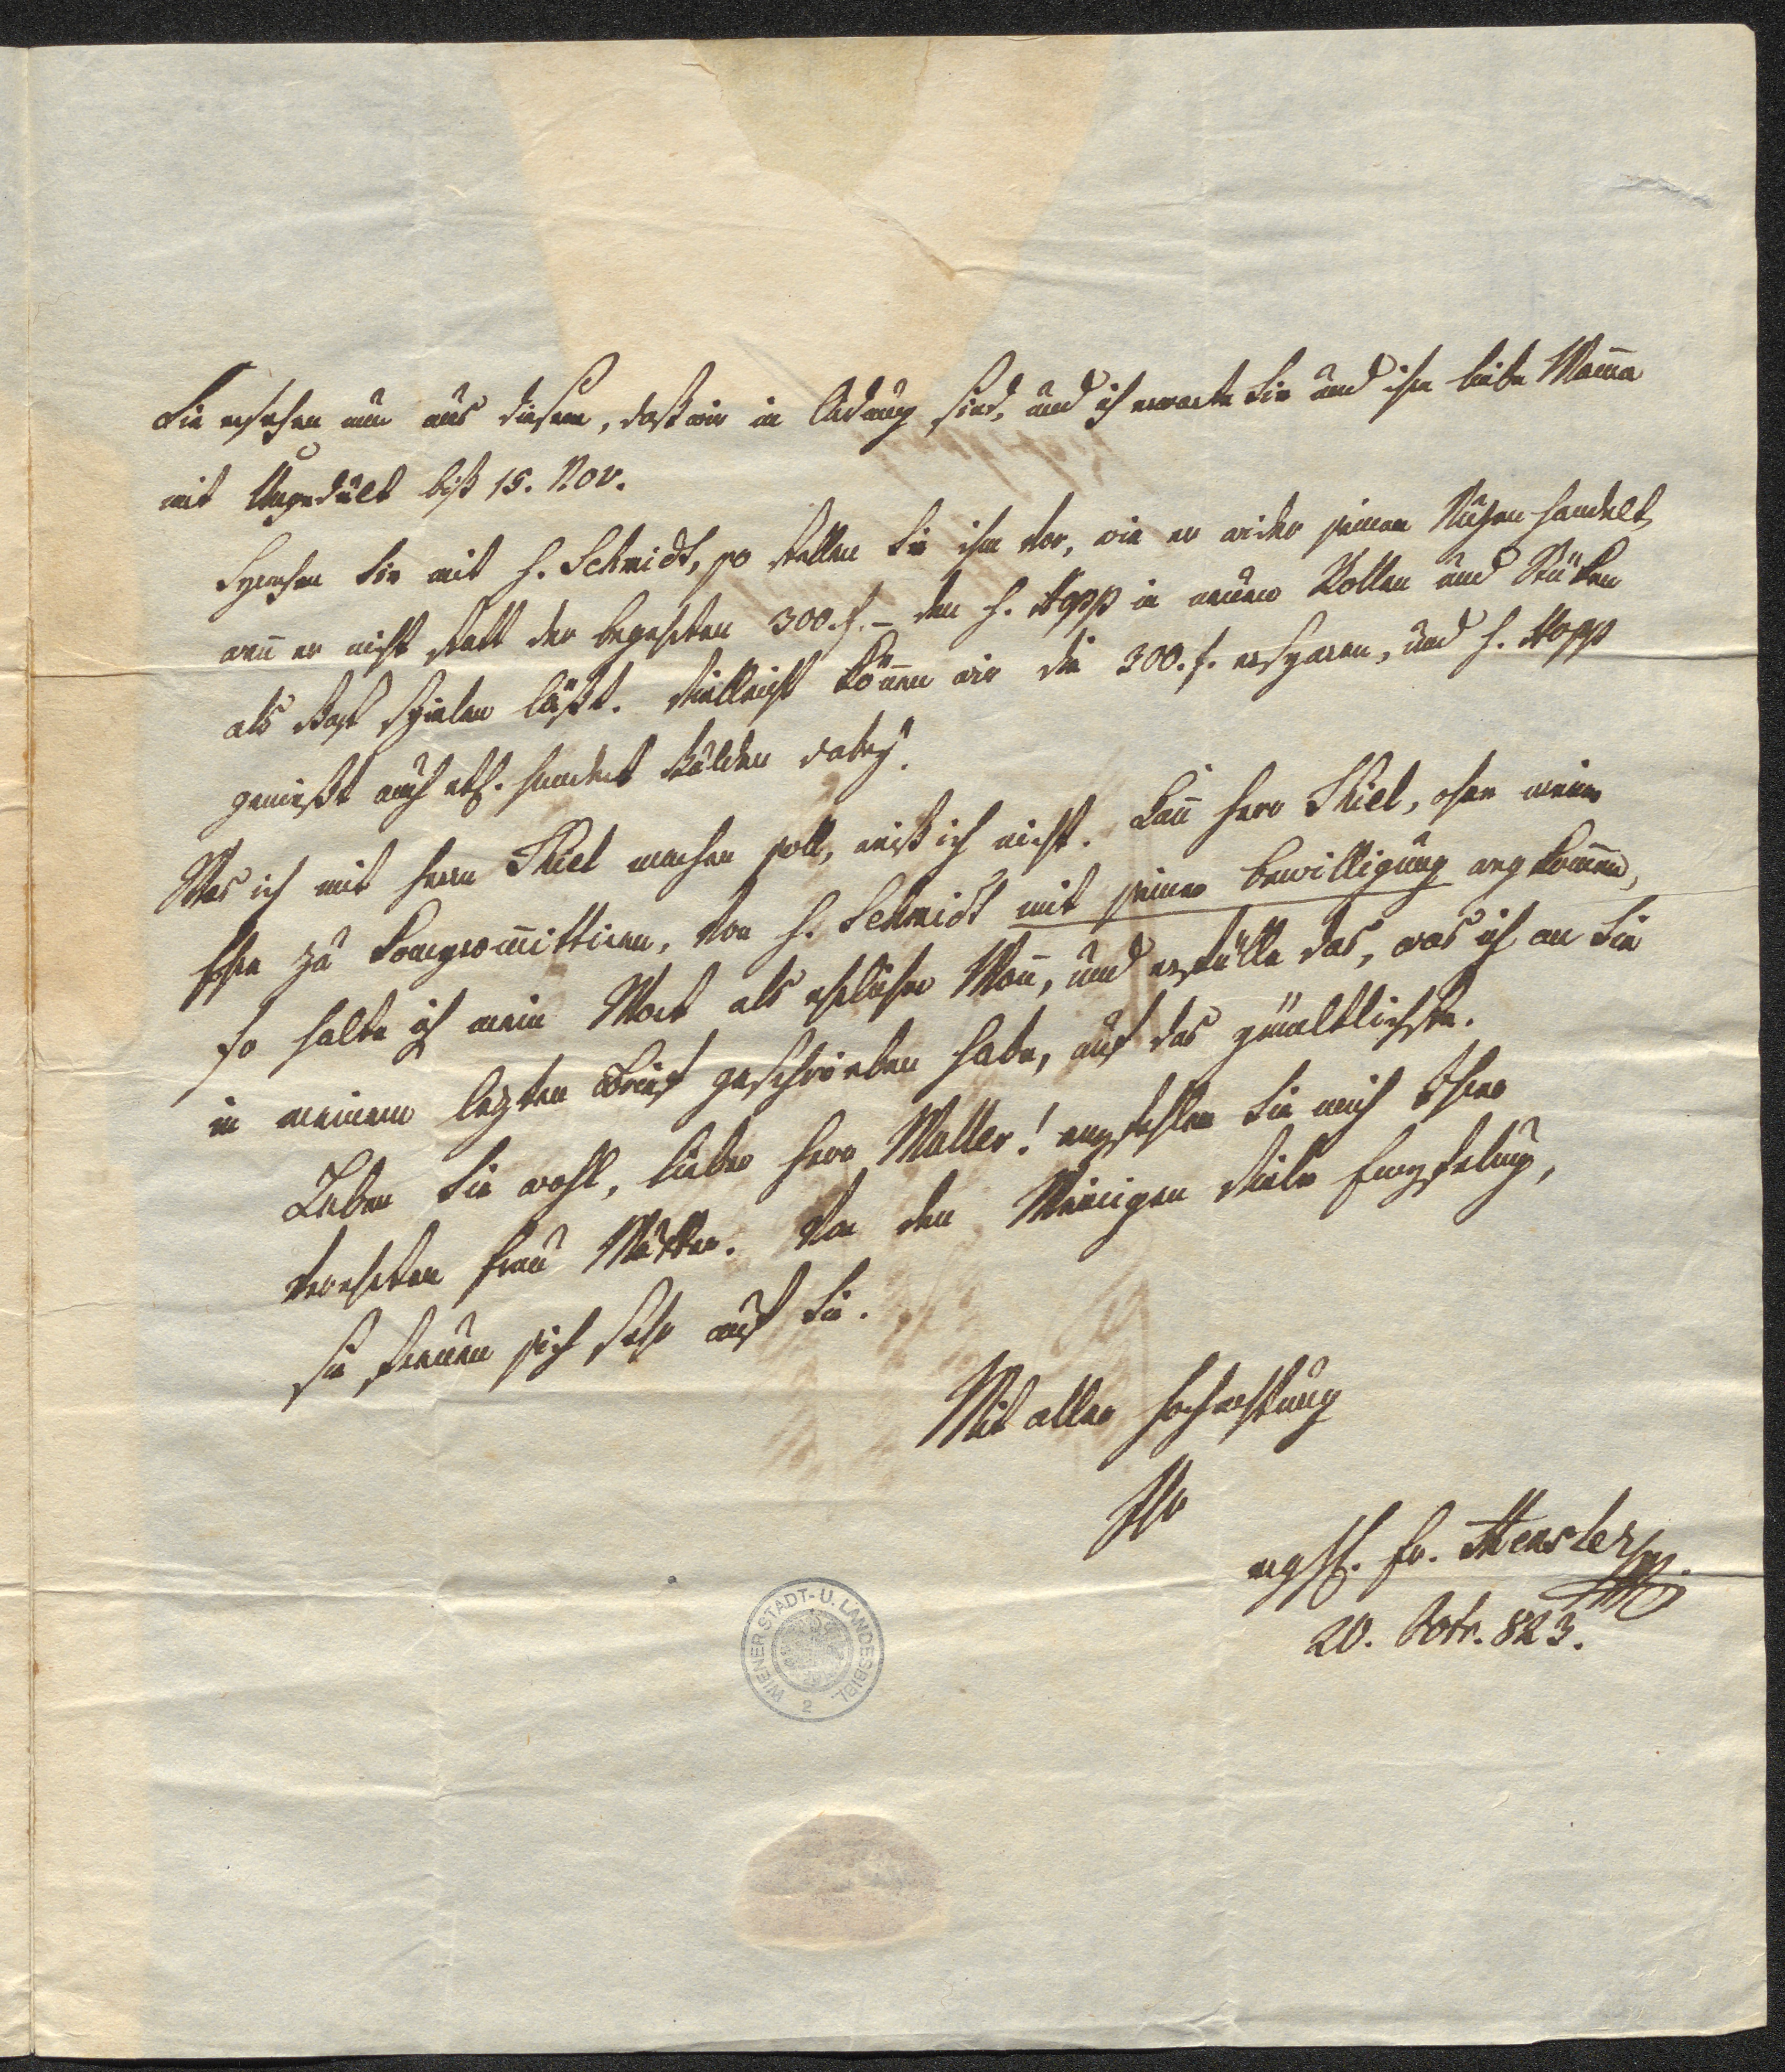 Sie ersehen nun aus diesem, daß wir in Ordnung sind, und ich erwarte Sie und ihre liebe Mama
mit Ungedult biß 15. Nov.
Sprechen Sie mit H. Schmidt, so stellen Sie ihm vor, wie er wider seinen Nuzen handelt,
wenn er nicht statt der begehrten 300. f. – den H. Hopp in neuen Rollen und Stüken
als Gast spielen läßt. Vielleicht können wir die 300. f. ersparen, und H. Hopp
genießt auch etl. hundert Gulden dabey.
Was ich mit Herrn Thiel machen soll, weiß ich nicht. Kann Herr Thiel, ohne meine
Ehre zu Compromittiren, von H. Schmidt mit seiner Bewilligung wegkommen,
so halte ich mein Wort als ehrlicher Mann, und erfülle das, was ich an Sie
in meinem lezten Brief geschrieben habe, auf das
Leben Sie wohl, lieber Herr Waller! empfehlen Sie mich Ihrer
verehrten Frau Mutter. Von den Meinigen viele Empfelung,
sie freuen sich sehr auf Sie.
Mit aller Hochachtung
Ihr
ergst. Fr. Hensler
20. Octr. 823.
WIENER STADT- U. LANDESBIBL.
2